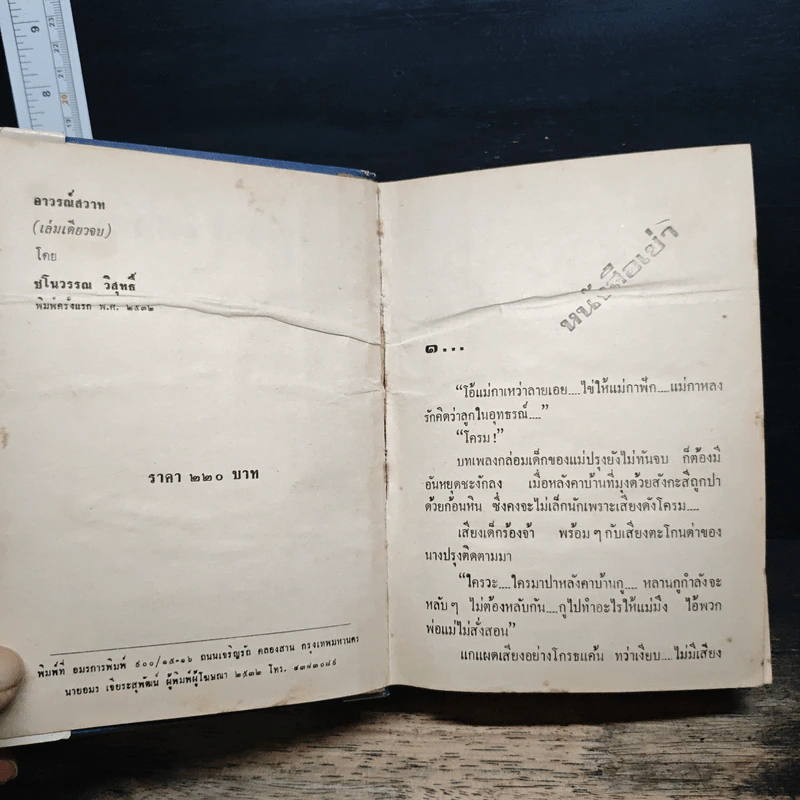 อาวรณ์สวาท
(เล่มเดียวจบ)
โดย
ชโนวรรณ วิสุทธิ์
พิมพ์ครั้งแรก พ.ศ. ๒๕๓๒
ราคา ๒๒๐ บาท
พิมพ์ที่ อมรการพิมพ์ ๙๐๐/๑๕-๑๖ ถนนเจริญรัถ คลองสาน กรุงเทพมหานคร
นายอมร เจียระสุพัฒน์ ผู้พิมพ์ผู้โฆษณา ๒๕๓๒ โทร. ๔๓๗๓๐๘๖
หนังสือเช่า
๑...
“โอ้แม่กาเหว่าลายเอย....ไข่ให้แม่กาฟัก....แม่กาหลง
รักคิดว่าลูกในอุทธรณ์....”
“โครม!”
บทเพลงกล่อมเด็กของแม่ปรุงยังไม่ทันจบ ก็ต้องมี
อันหยุดชะงักลง เมื่อหลังคาบ้านที่มุงด้วยสังกะสีถูกปา
ด้วยก้อนหิน ซึ่งคงจะไม่เล็กนักเพราะเสียงดังโครม....
เสียงเด็กร้องจ้า พร้อมๆ กับเสียงตะโกนด่าของ
นางปรุงติดตามมา
“ใครวะ....ใครมาปาหลังคาบ้านกู.... หลานกูกำลังจะ
หลับๆ ไม่ต้องหลับกัน....กูไปทำอะไรให้แม่มึง ไอ้พวก
พ่อแม่ไม่สั่งสอน”
แกแผดเสียงอย่างโกรธแค้น ทว่าเงียบ....ไม่มีเสียง
9
8
23
22
21
20